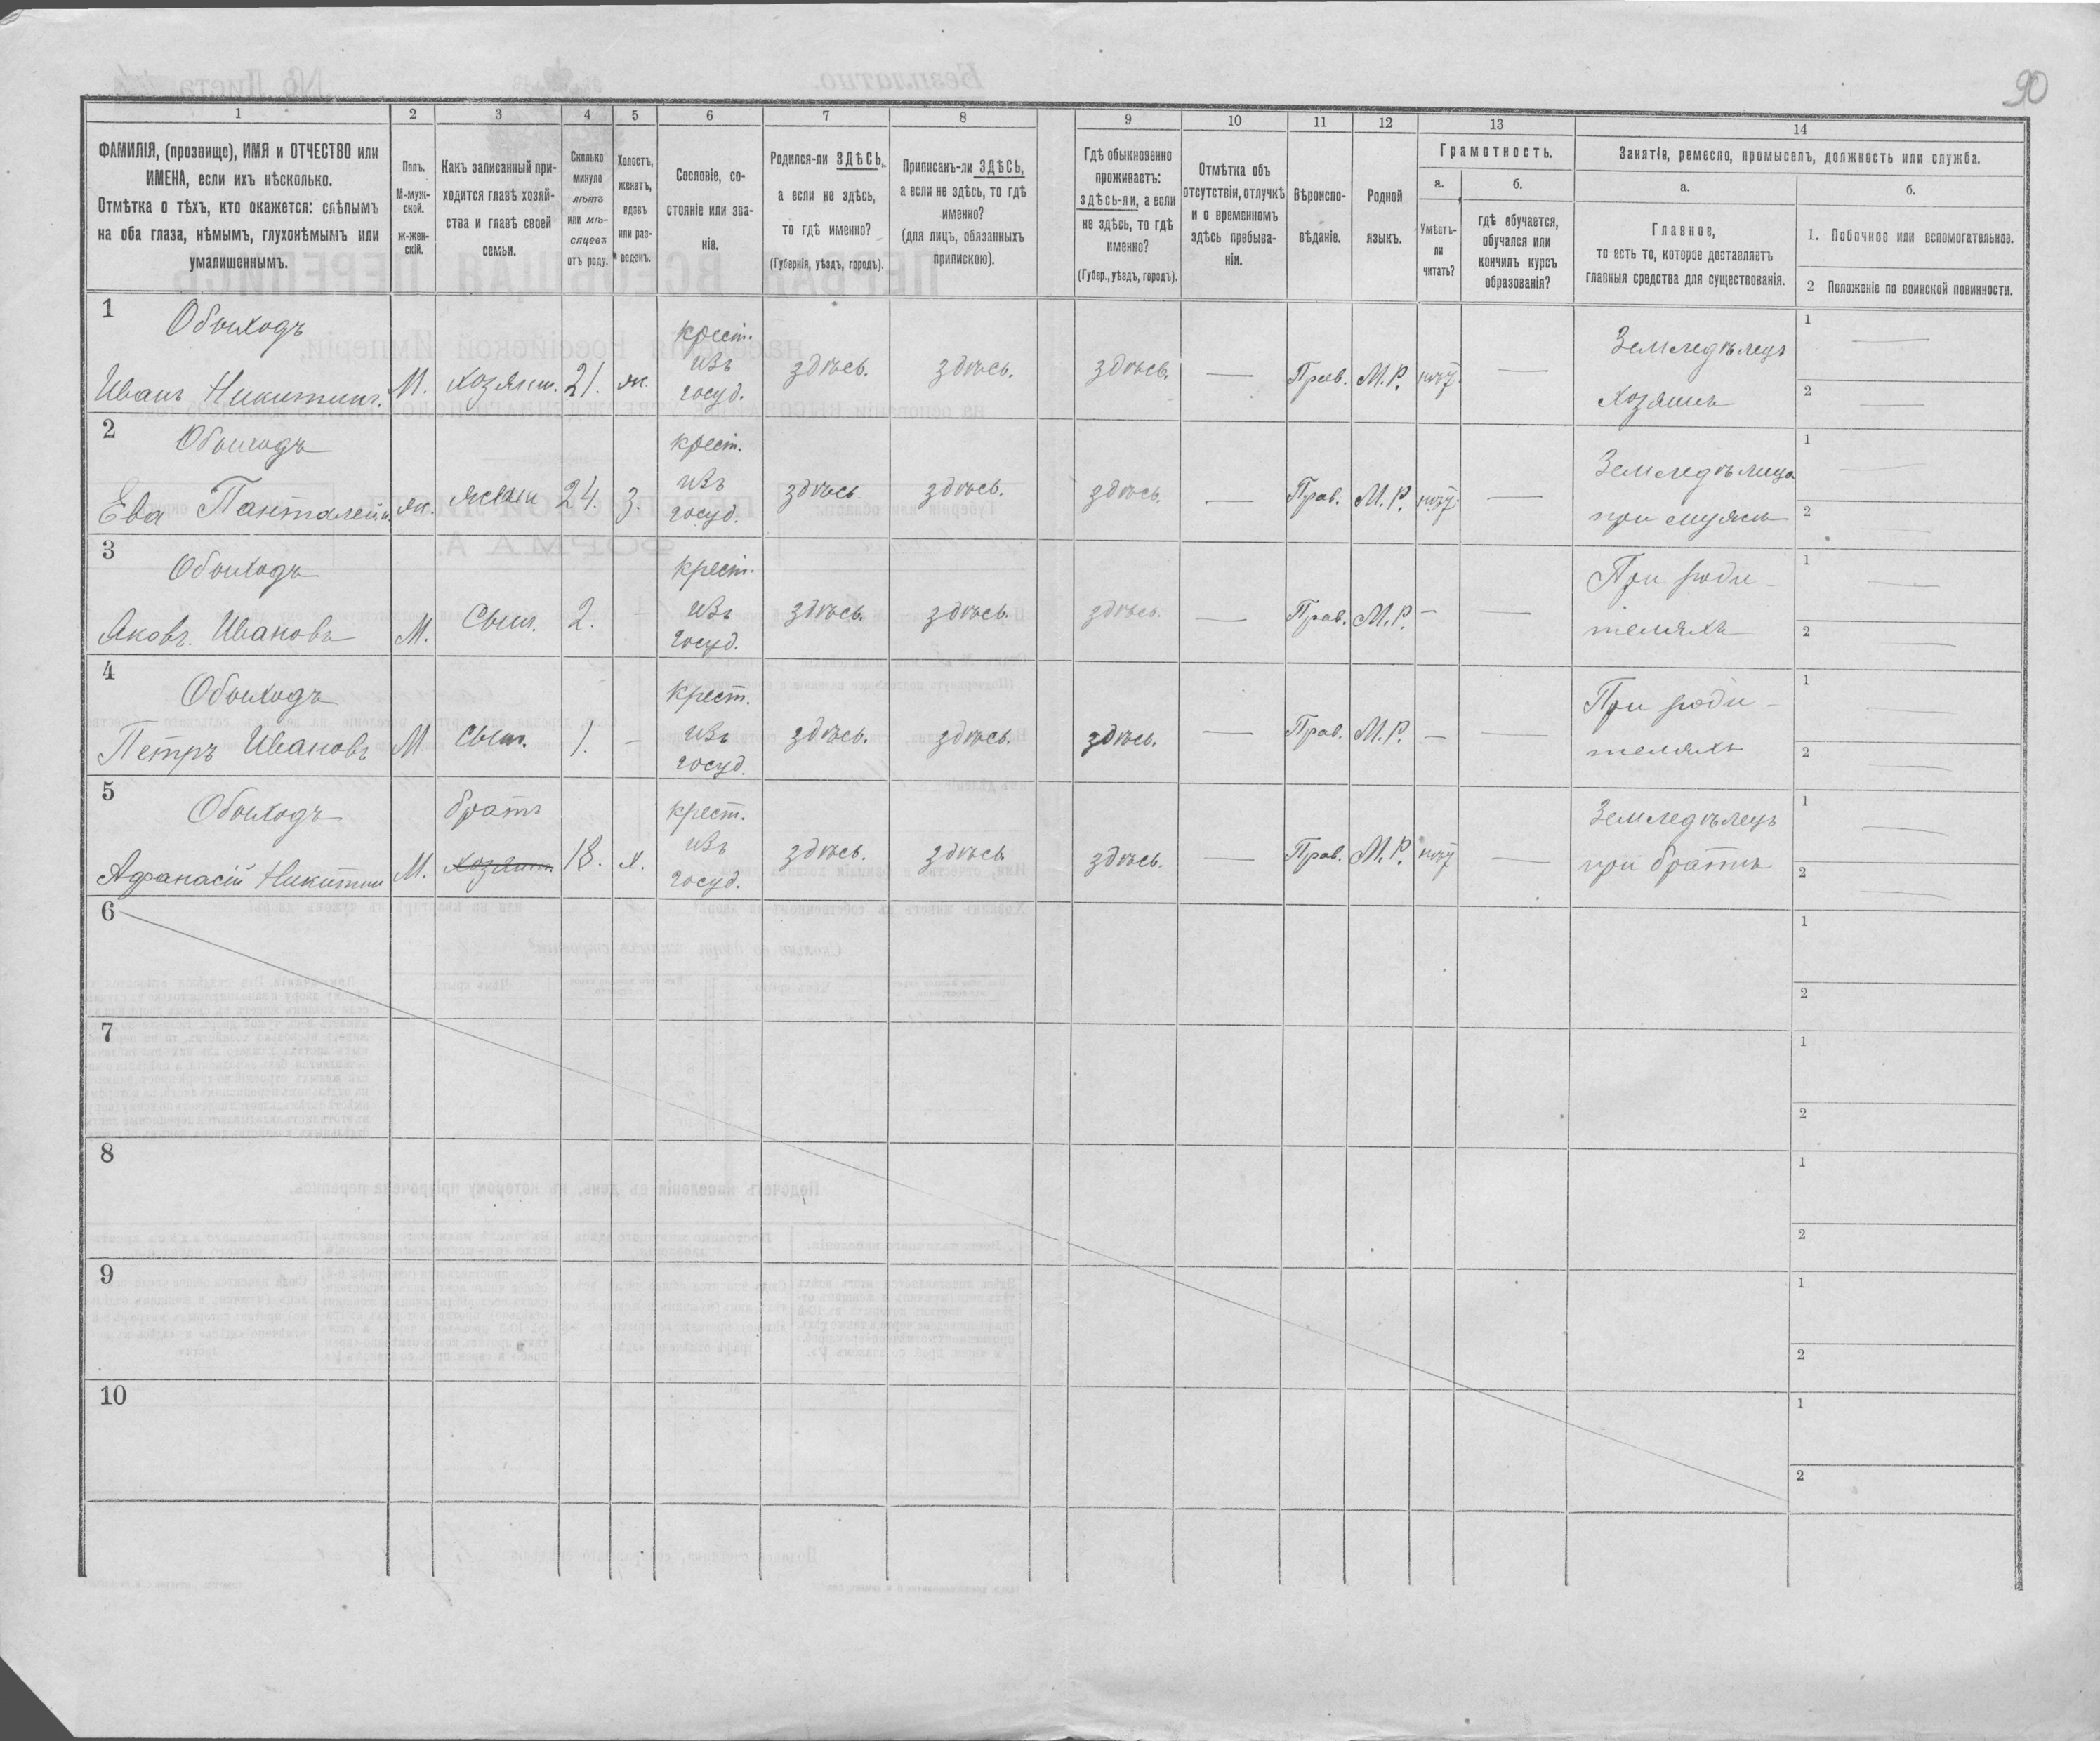 90
1 2 3 4 5 6 7 8 9 10 11 12 13 14
ФАМИЛІЯ, (прозвище), ИМЯ и ОТЧЕСТВО или
ИМЕНА, если ихъ нѣсколько.
Отмѣтка о тѣхъ, кто окажется: слѣпымъ
на оба глаза, нѣмымъ, глухонѣмымъ или
умалишеннымъ.
Полъ.
М-муж-
ской.
ж-жен-
скій.
Какъ записанный при-
ходится главѣ хозяй-
ства и главѣ своей
семьи.
Сколько
минуло
лѣтъ
или мѣ-
сяцевъ
отъ роду.
Холостъ,
женатъ,
вдовъ
или раз-
веденъ.
Сословіе, со-
стояніе или зва-
ніе.
Родился-ли ЗДѢСЬ,
а если не здѣсь,
то гдѣ именно?
(Губернія, уѣздъ, городъ).
Приписанъ-ли ЗДѢСЬ,
а если не здѣсь, то гдѣ
именно?
(для лицъ, обязанныхъ
припискою).
Гдѣ обыкновенно
проживаетъ:
здѣсь-ли, а если
не здѣсь, то гдѣ
именно?
(Губер., уѣздъ, городъ).
Отмѣтка объ
отсутствіи, отлучкѣ
и о временномъ
здѣсь пребыва-
ніи.
Вѣроиспо-
вѣданіе.
Родной
языкъ.
Грамотность.
а.
Умѣетъ-
ли
читать?
б.
гдѣ обучается,
обучался или
кончилъ курсъ
образованія?
Занятіе, ремесло, промыселъ, должность или служба.
а.
Главное,
то есть то, которое доставляетъ
главныя средства для существованія.
б.
1. Побочное или вспомогательное.
2 Положеніе по воинской повинности.
1
Обыходъ
Иванъ Никитинъ. М. хозяин. 21. ж.
крест.
изъ
госуд.
здѣсь. здѣсь. здѣсь. — Прав. М.Р. —
Земледѣлецъ
хозяинъ
1 —
2 —
2
Обыходъ
Ева Пантелейм. ж. жена 24. З.
крест.
изъ
госуд.
здѣсь. здѣсь. здѣсь. — Прав. М.Р. —
Земледѣлица
при мужѣ
1 —
2 —
3
Обыходъ
Яковъ. Ивановъ М. Сынъ. 2. —
крест.
изъ
госуд.
здѣсь. здѣсь. здѣсь. — Прав. М.Р. — —
При роди-
теляхъ
1 —
2 —
4
Обыходъ
Петръ Ивановъ М. Сынъ. 1. —
крест.
изъ
госуд.
здѣсь. здѣсь. здѣсь. — Прав. М.Р. — —
При роди-
теляхъ
1 —
2 —
5
Обыходъ
Афанасій Никитин М.
братъ
хозяин
18. х.
крест.
изъ
госуд.
здѣсь. здѣсь здѣсь. — Прав. М.Р. —
Земледѣлецъ
при братѣ
1 —
2 —
6
1
2
7
1
2
8
1
2
9
1
2
10
1
2